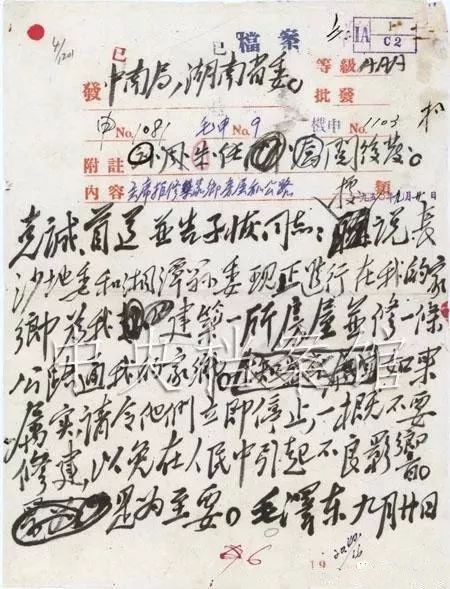 已 已 檔案
IA
C2
發 中南局，湖南省委。 等級 AAA
批發
申 No.1081 毛申 No.9 機申 No.1103
附註 周朱任 閱後發。
內容 主席拒修築家鄉房屋和公路 類
克誠、首道並告子恢同志：據說長
沙地委和湘潭縣委現正進行在我的家
鄉為我建築一所房屋並修一條
公路通我的家鄉。如果
屬實，請令他們立即停止，一概不要
修建，以免在人民中引起不良影響。
是為至要。毛澤东 九月廿日
中央档案馆
6 19